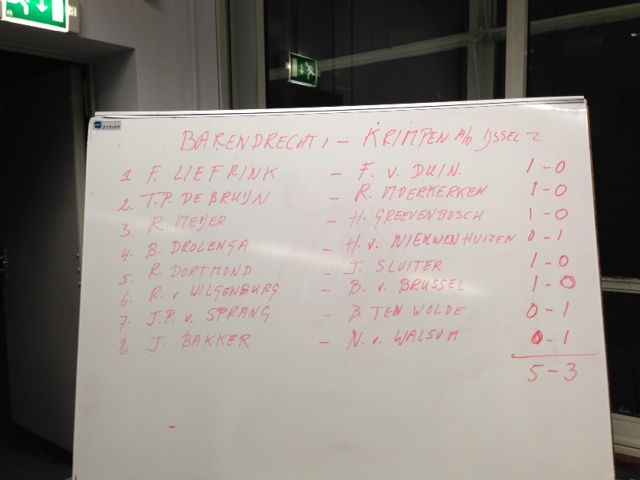 BARENDRECHT 1 - KRIMPEN A/D IJSSEL 2
1 F. LIEFRINK - F. v. DUIN. 1 - 0
2. T.P. DE BRUIJN - R. MOERKERKEN 1 - 0
3 R. MEIJER - H. GREEVENBOSCH 1 - 0
4 B. DROLENGA - H. v. NIEKWENHUIZEN 0 - 1
5. R. DORTMOND - J. SLUITER 1 - 0
6 R. v. WILGENBURG - B. v. BRUSSEL 1 - 0
7 J.P. v. SPRANG - B. TEN WOLDE 0 - 1
8 J. BAKKER - N. v. WALSUM 0 - 1
5 - 3